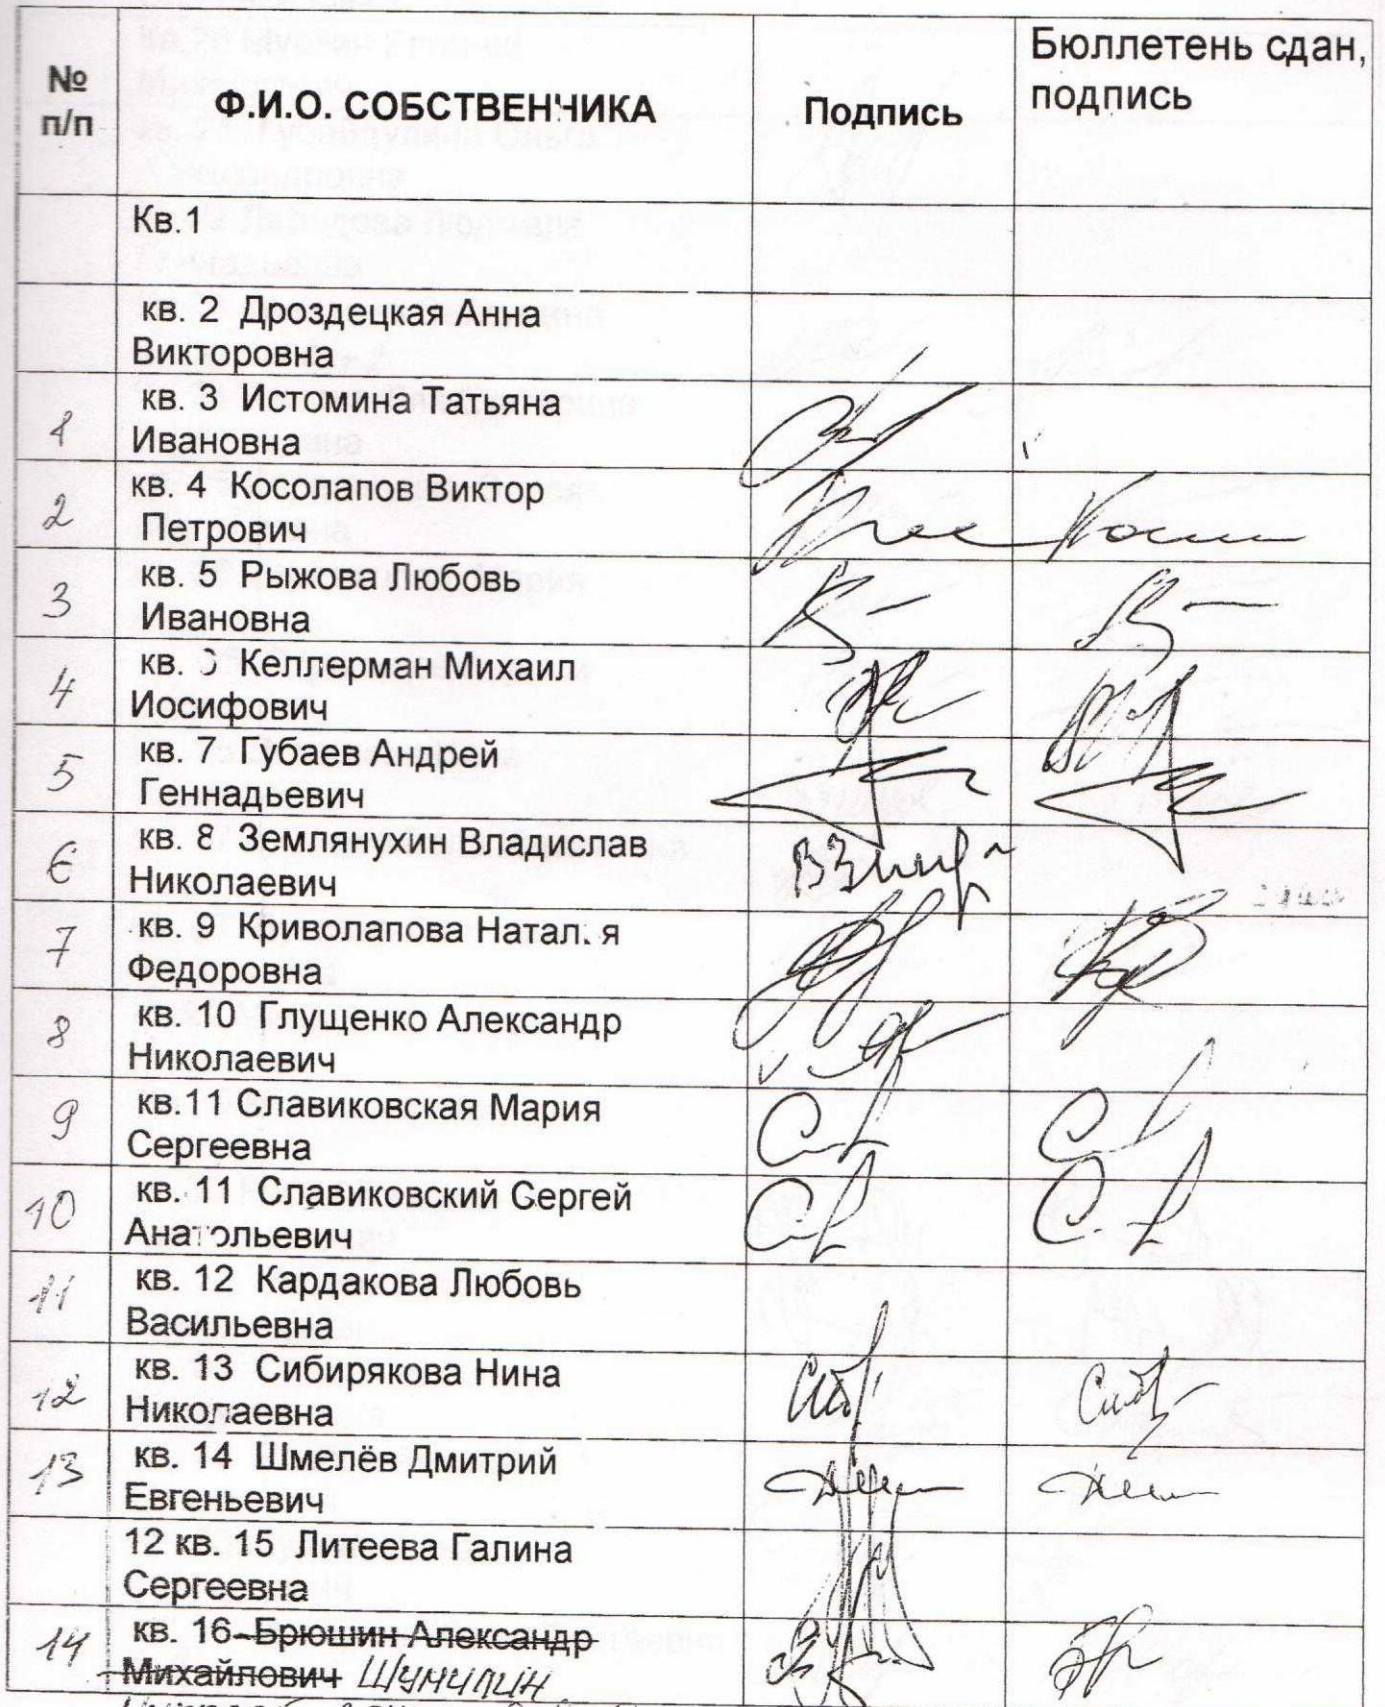 № п/п Ф.И.О. СОБСТВЕННИКА Подпись Бюллетень сдан, подпись
Кв.1
кв. 2 Дроздецкая Анна
Викторовна
1 кв. 3 Истомина Татьяна
Ивановна
2 кв. 4 Косолапов Виктор
Петрович
3 кв. 5 Рыжова Любовь
Ивановна
4 кв. Келлерман Михаил
Иосифович
5 кв. 7 Губаев Андрей
Геннадьевич
6 кв. 8 Землянухин Владислав
Николаевич
7 кв. 9 Криволапова Наталья
Федоровна
8 кв. 10 Глущенко Александр
Николаевич
9 кв.11 Славиковская Мария
Сергеевна
10 кв. 11 Славиковский Сергей
Анатольевич
11 кв. 12 Кардакова Любовь
Васильевна
12 кв. 13 Сибирякова Нина
Николаевна
13 кв. 14 Шмелёв Дмитрий
Евгеньевич
12 кв. 15 Литеева Галина
Сергеевна
14 кв. 16 Брюшин Александр
Михайлович Шумилин